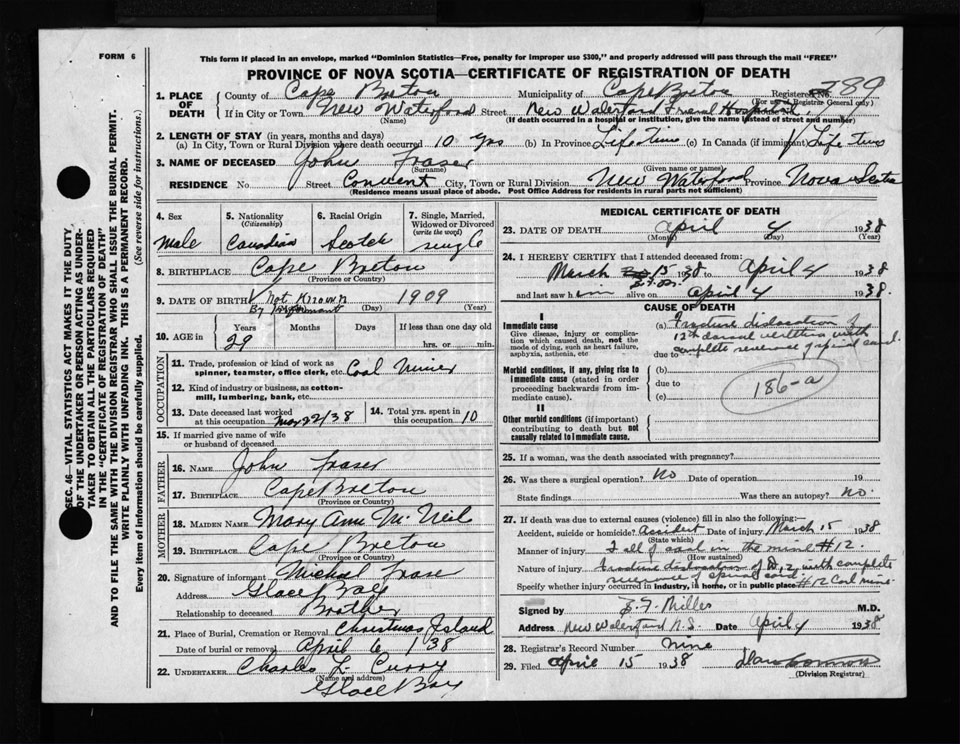 FORM 6
This form if placed in an envelope, marked "Dominion Statistics—Free, penalty for improper use $300," and properly addressed will pass through the mail "FREE"
PROVINCE OF NOVA SCOTIA—CERTIFICATE OF REGISTRATION OF DEATH
1. PLACE OF DEATH County of Cape Breton Municipality of Cape Breton Registered No. 789
(For use of Registrar General only)
If in City or Town New Waterford Street New Waterford General Hospital
(Name) (If death occurred in a hospital or institution, give the name instead of street and number)
2. LENGTH OF STAY (in years, months and days)
(a) In City, Town or Rural Division where death occurred 10 yrs (b) In Province Life Time (c) In Canada (if immigrant) Life time
3. NAME OF DECEASED John Fraser
(Surname) (Given name or names)
RESIDENCE No. Street Convent City, Town or Rural Division New Waterford Province Nova Scotia
(Residence means usual place of abode. Post Office Address for residents in rural parts not sufficient)
4. Sex
male
5. Nationality (Citizenship)
Canadian
6. Racial Origin
Scotch
7. Single, Married, Widowed or Divorced (write the word)
single
8. BIRTHPLACE Cape Breton
(Province or Country)
9. DATE OF BIRTH Not Known 1909
By Informant (Day) (Year)
10. AGE in Years Months Days If less than one day old
29 hrs. or min.
OCCUPATION
11. Trade, profession or kind of work as spinner, teamster, office clerk, etc. Coal Miner
12. Kind of industry or business, as cotton-mill, lumbering, bank, etc.
13. Date deceased last worked at this occupation 22/38
14. Total yrs. spent in this occupation 10
15. If married give name of wife or husband of deceased
FATHER
16. NAME John Fraser
17. BIRTHPLACE Cape Breton
(Province or Country)
MOTHER
18. MAIDEN NAME Mary Ann McNeil
19. BIRTHPLACE Cape Breton
(Province or Country)
20. Signature of informant Michael Fraser
Address Glace Bay
Relationship to deceased Brother
21. Place of Burial, Cremation or Removal Christmas Island
Date of burial or removal April 6 1938
22. UNDERTAKER Charles L. Curry
(Name and address)
Glace Bay
MEDICAL CERTIFICATE OF DEATH
23. DATE OF DEATH April 4 1938
(Month) (Day) (Year)
24. I HEREBY CERTIFY that I attended deceased from:
March 15 1938 to April 4 1938
and last saw him alive on April 4 1938.
CAUSE OF DEATH
I
Immediate cause
Give disease, injury or complication which caused death, not the mode of dying, such as heart failure, asphyxia, asthenia, etc
(a) Fracture dislocation of
12th dorsal vertebra with
due to complete severance of spinal canal.
Morbid conditions, if any, giving rise to immediate cause (stated in order proceeding backwards from immediate cause).
(b)
due to
(c)
186-a
II
Other morbid conditions (if important) contributing to death but not causally related to immediate cause.
25. If a woman, was the death associated with pregnancy?
26. Was there a surgical operation? No Date of operation 19
State findings Was there an autopsy? no.
27. If death was due to external causes (violence) fill in also the following:—
Accident, suicide or homicide? Accident Date of injury March 15 1938
(State which)
Manner of injury Fall of coal in the mine #12.
(How sustained)
Nature of injury Fracture dislocation of D.12, with complete
severance of spinal cord.
Specify whether injury occurred in industry, in home, or in public place #12 Coal mine
Signed by Miller M.D.
Address New Waterford N.S. Date April 4 1938
28. Registrar's Record Number nine
29. Filed April 15 1938
(Division Registrar)
SEC. 46—VITAL STATISTICS ACT MAKES IT THE DUTY
OF THE UNDERTAKER OR PERSON ACTING AS UNDERTAKER TO OBTAIN ALL THE PARTICULARS REQUIRED
IN THE "CERTIFICATE OF REGISTRATION OF DEATH"
AND TO FILE THE SAME WITH THE DIVISION REGISTRAR WHO SHALL ISSUE THE BURIAL PERMIT.
WRITE PLAINLY WITH UNFADING INK. THIS IS A PERMANENT RECORD.
Every item of information should be carefully supplied. (See reverse side for instructions.)